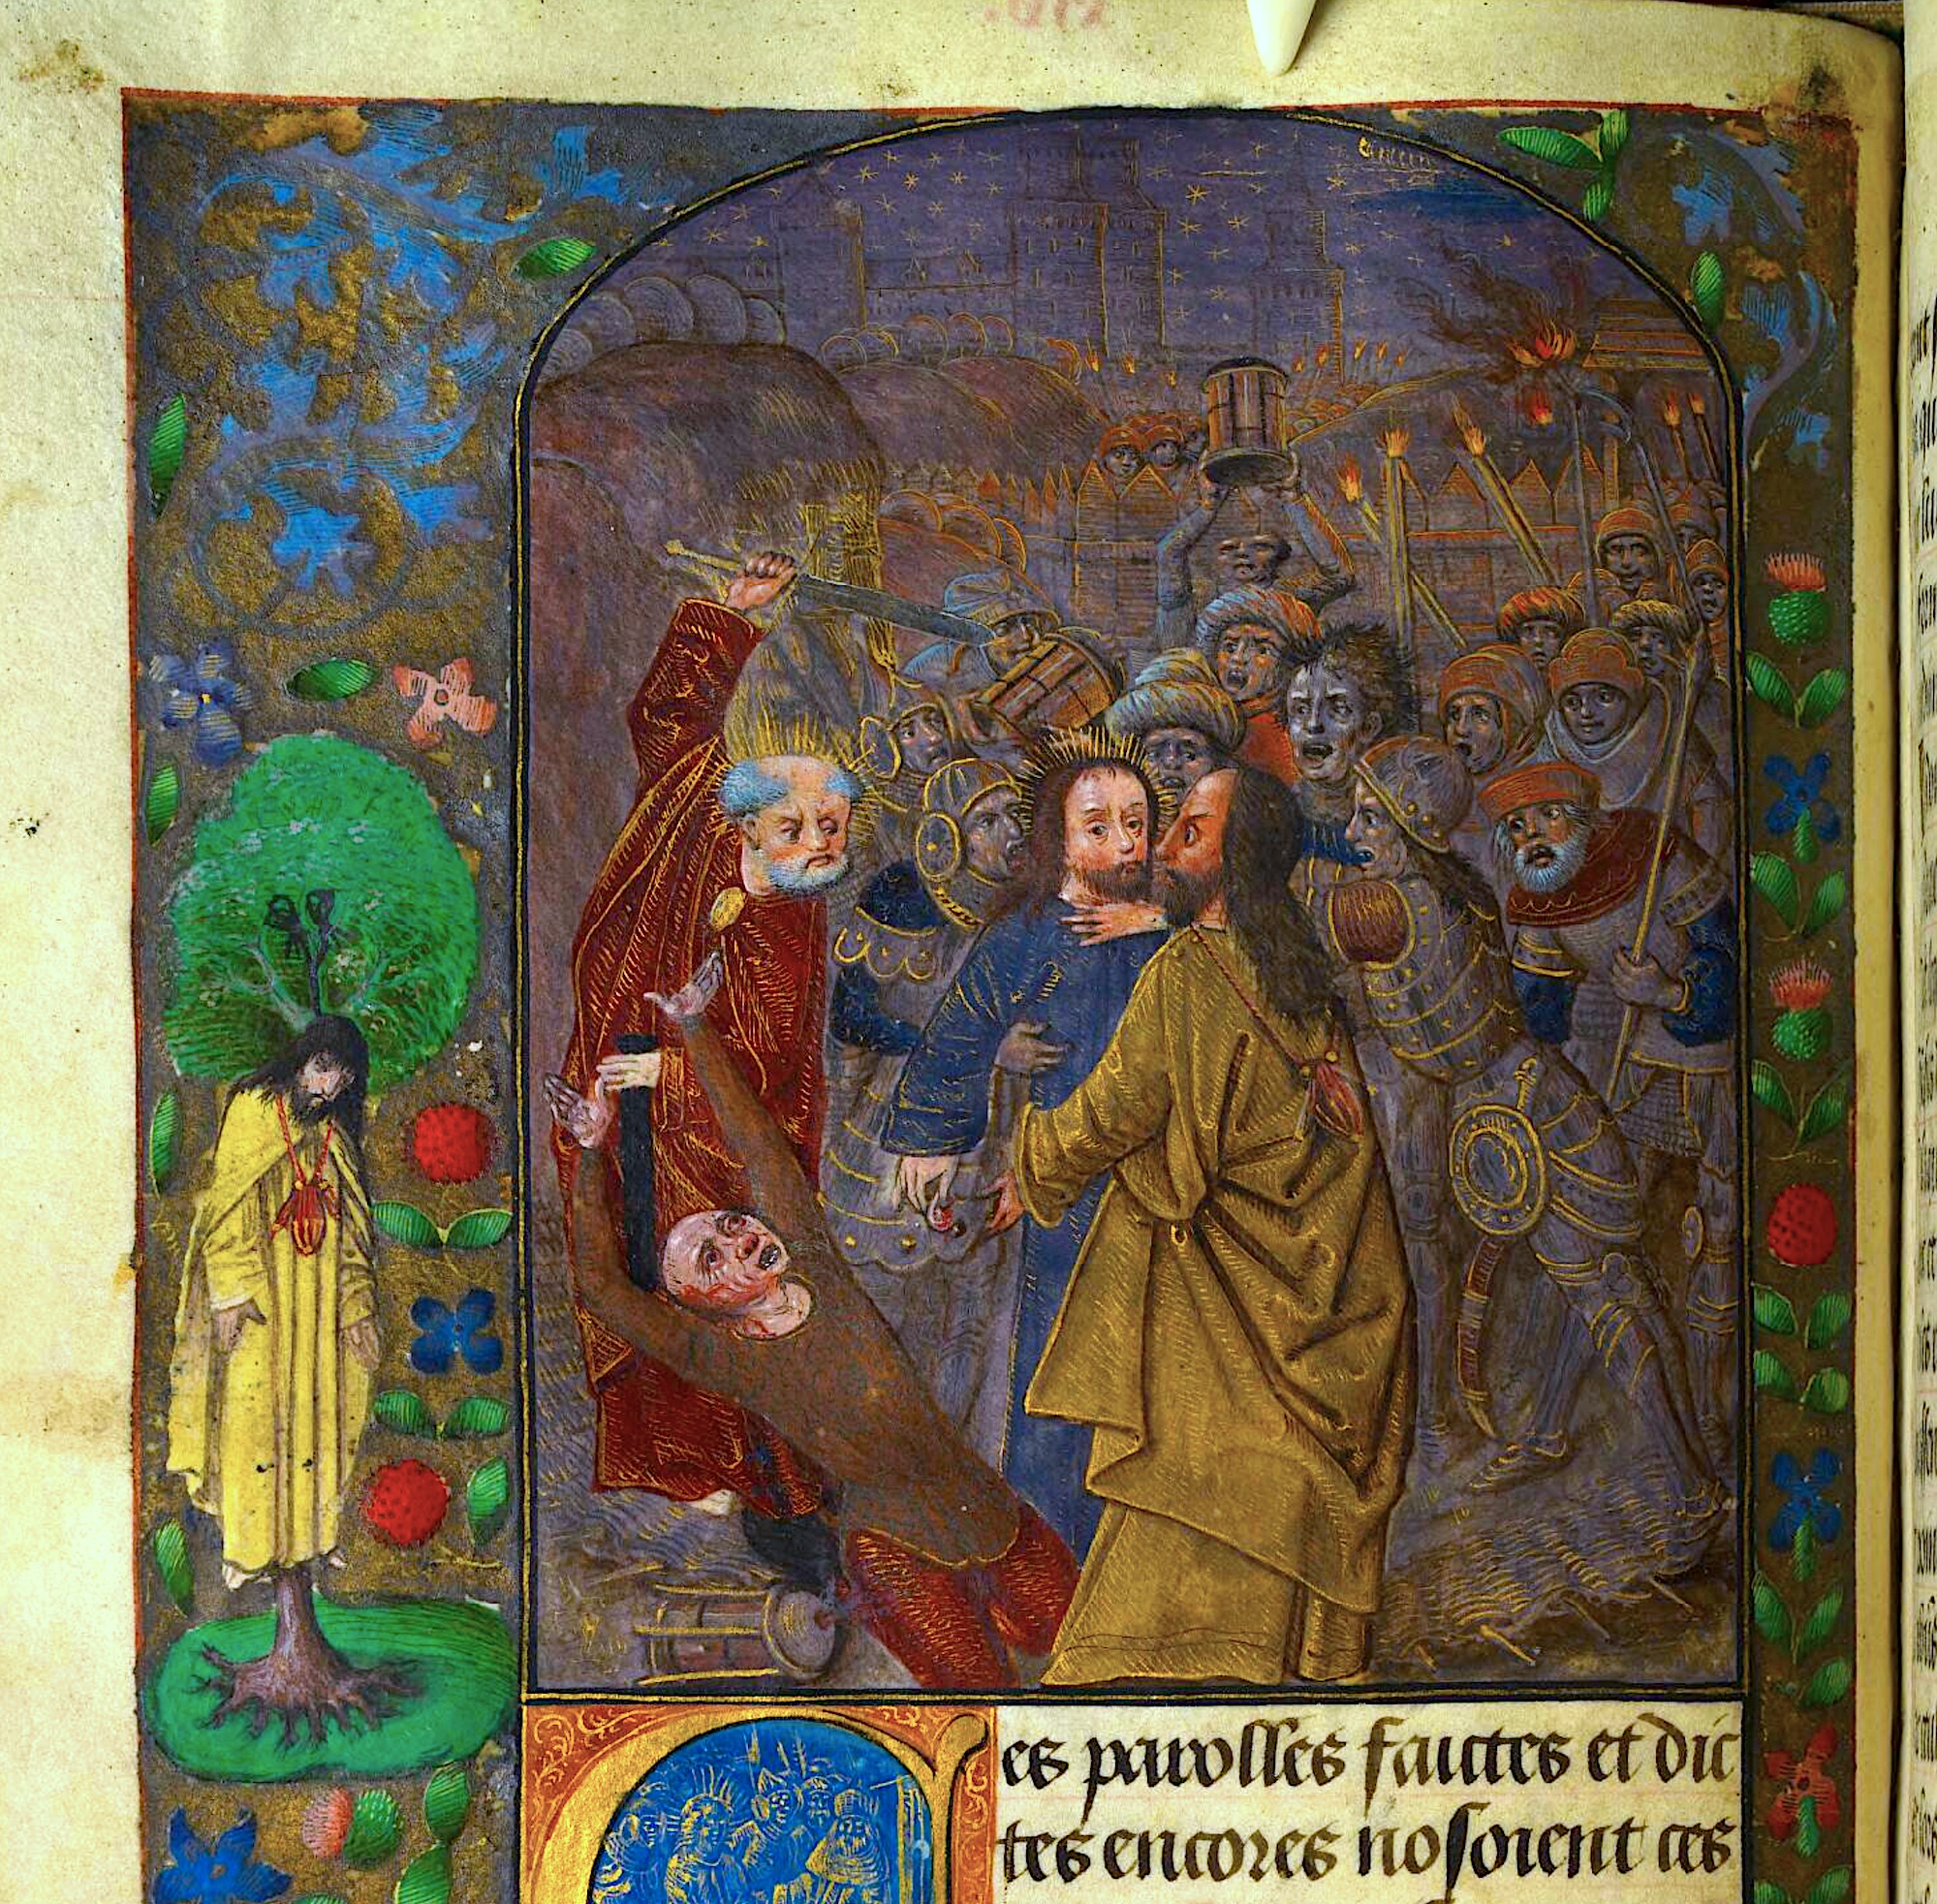 es parolles faictes et dic
tes encores nosoient ces